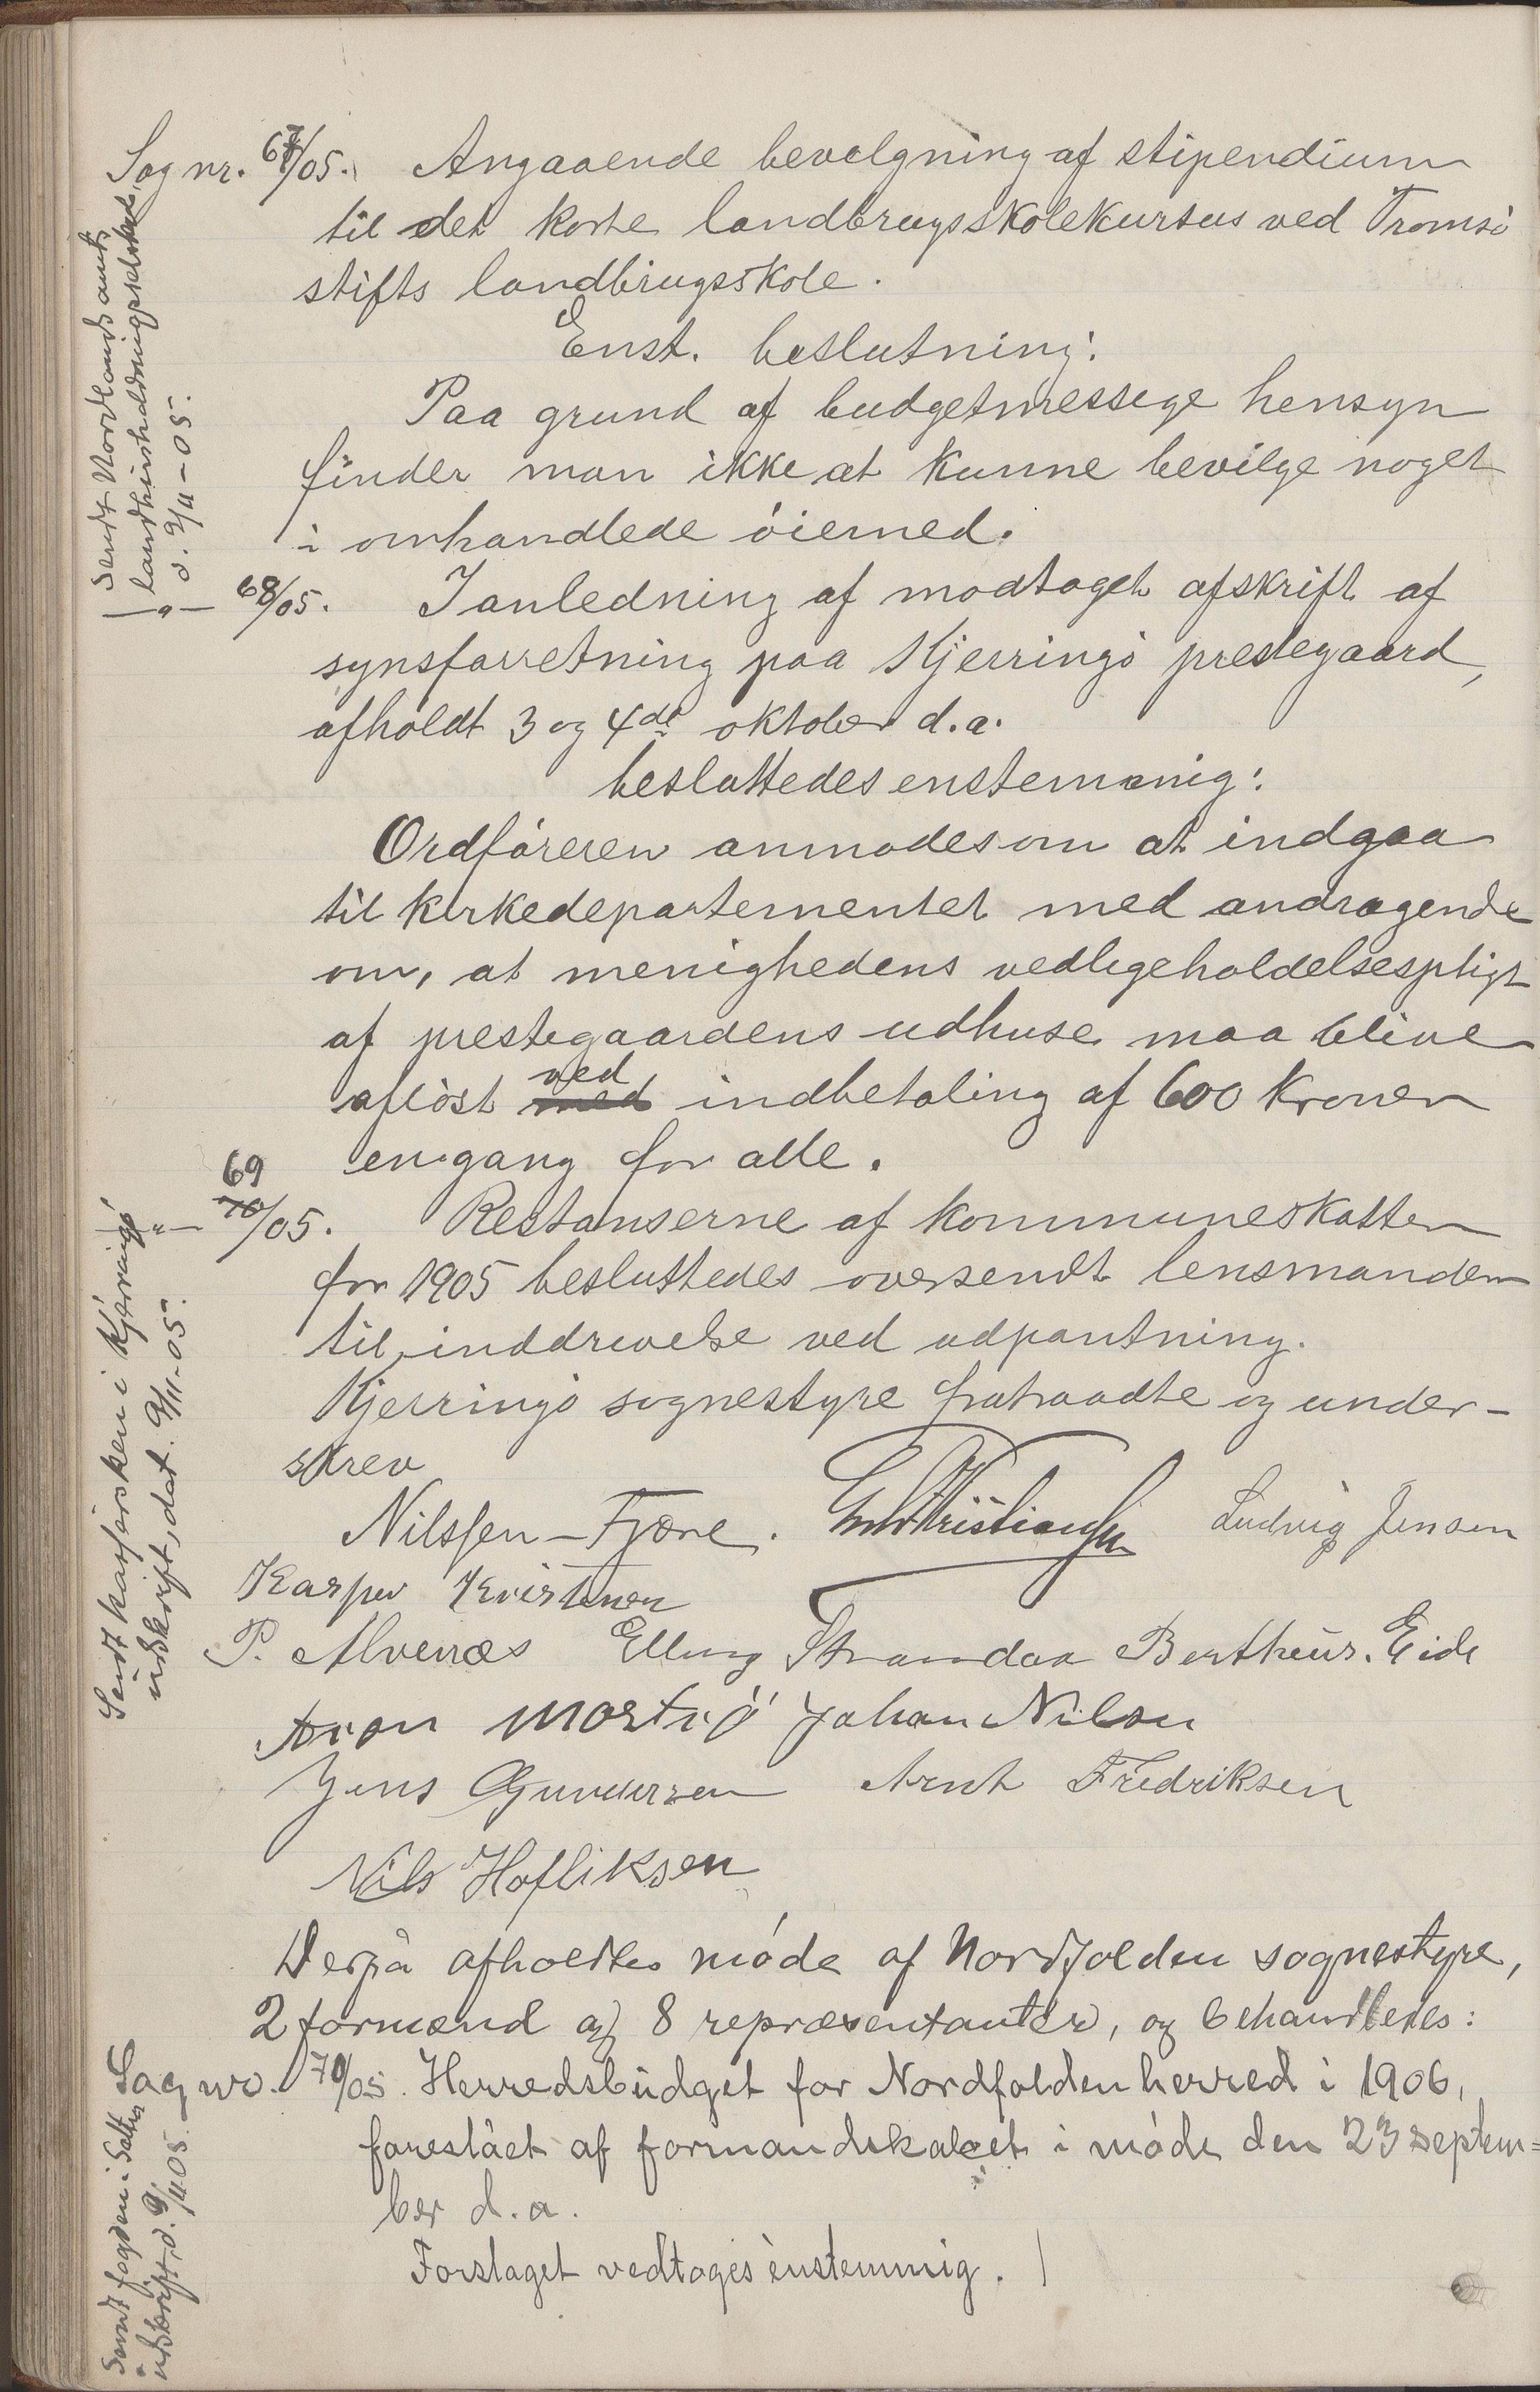 Sag nr. 67/05. Angaaende bevelgning af stipendium
til det korte landbrugsskolekursus ved Tromsö
stifts landbrugsskole.
Enst. beslutning:
Paa grund af budgetmessege hensyn
finder man ikke at kunne bevilge noget
i omhandlede öiemed.
Sendt Nordlands amts
landhusholdningselskab,
d. 9/11-05.
—"— 68/05. I anledning af modtaget afskrift af
synsforretning paa Kjerringö prestegaard,
afholdt 3 og 4de oktober d.a.
besluttedes enstemmig:
Ordföreren anmodes om at indgaa
til kirkedepartementet med andragende
om, at menighedens vedligeholdelsespligt
af prestegaardens udhuse maa blive
aflöst med ved indbetaling af 600 kroner
engang for alle.
—"— 70 69/05. Restanserne af kommuneskatten
for 1905 besluttedes oversendt lensmanden
til inddrivelse ved udpantning.
Kjerringö sognestyre fratraadte og under-
skrev
Sendt kasserskeren i Kjerringö
udskrift, dat. 9/11-05.
Nilssen-Fjære. Kristiansen Ludvig Jensen
Kasper Kristensen
P. Alvenæs Elling Strandaa Bertheus. Eide
Aron Mortsö Johan Nilsen
Jens Gundersen Arnt Fredriksen
Nils Hofliksen
Derpå afholdtes möde af Nordfolden sognestyre,
2 formænd og 8 repræsentanter, og behandledes:
Sag no. 70/05. Herredsbudget for Nordfolden herred i 1906,
foreslået af formandskabet i möde den 23 septem=
ber d.a.
Forslaget vedtoges enstemmig.
Sendt fogden i Salten
udskrift d. 9/11 05.